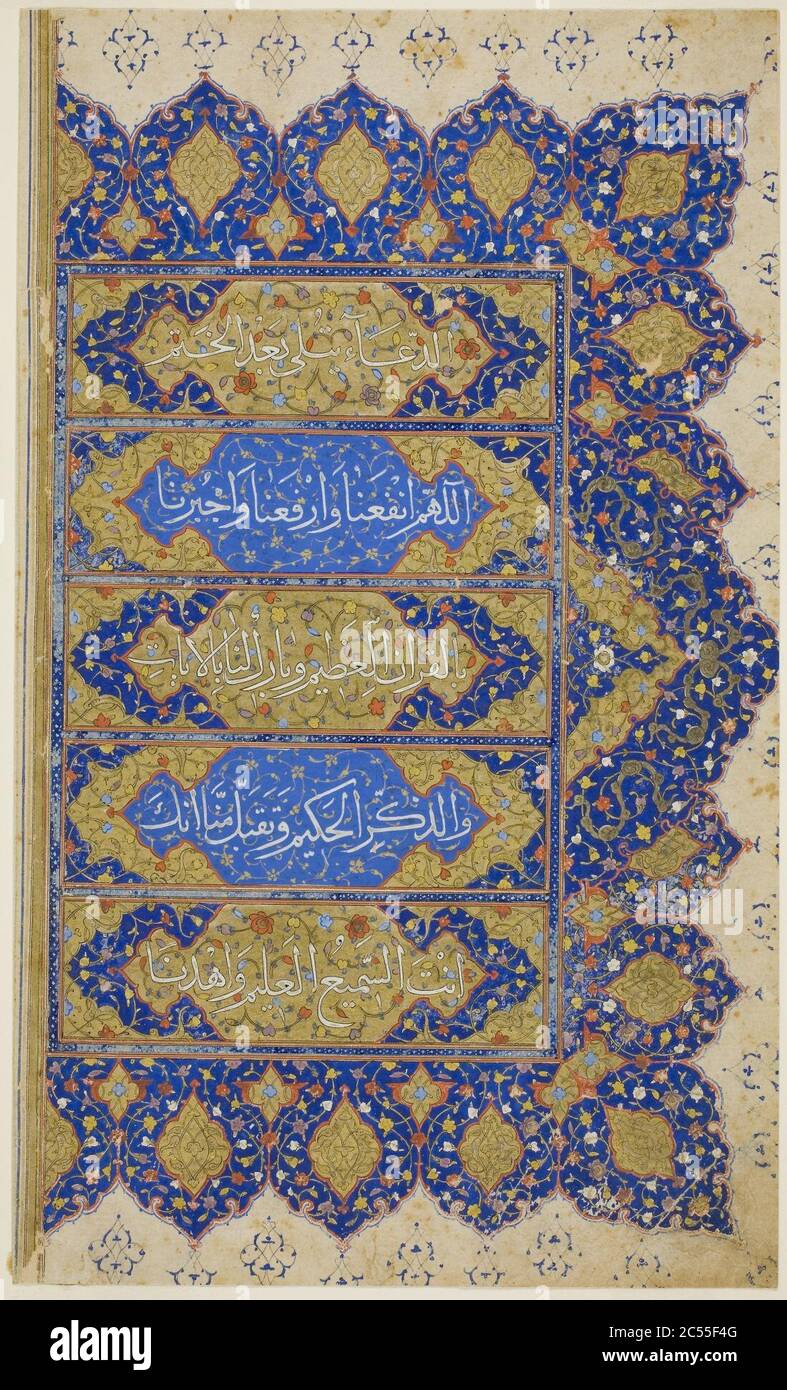 الدّعَآء يتلى بَعْدَ الختم
اللهُمَّ انْفَعْنا وَارْفَعنا وَاجْبُرنا
بالقرآن العَظِيم وبارك لنا بالايات
وَالذكر الحَكيم وَتَقبل منّا انك
انْتَ السَّمِيعُ العَليم وَاهْدنَا
alamy
Image ID: 2C55F4G
www.alamy.com